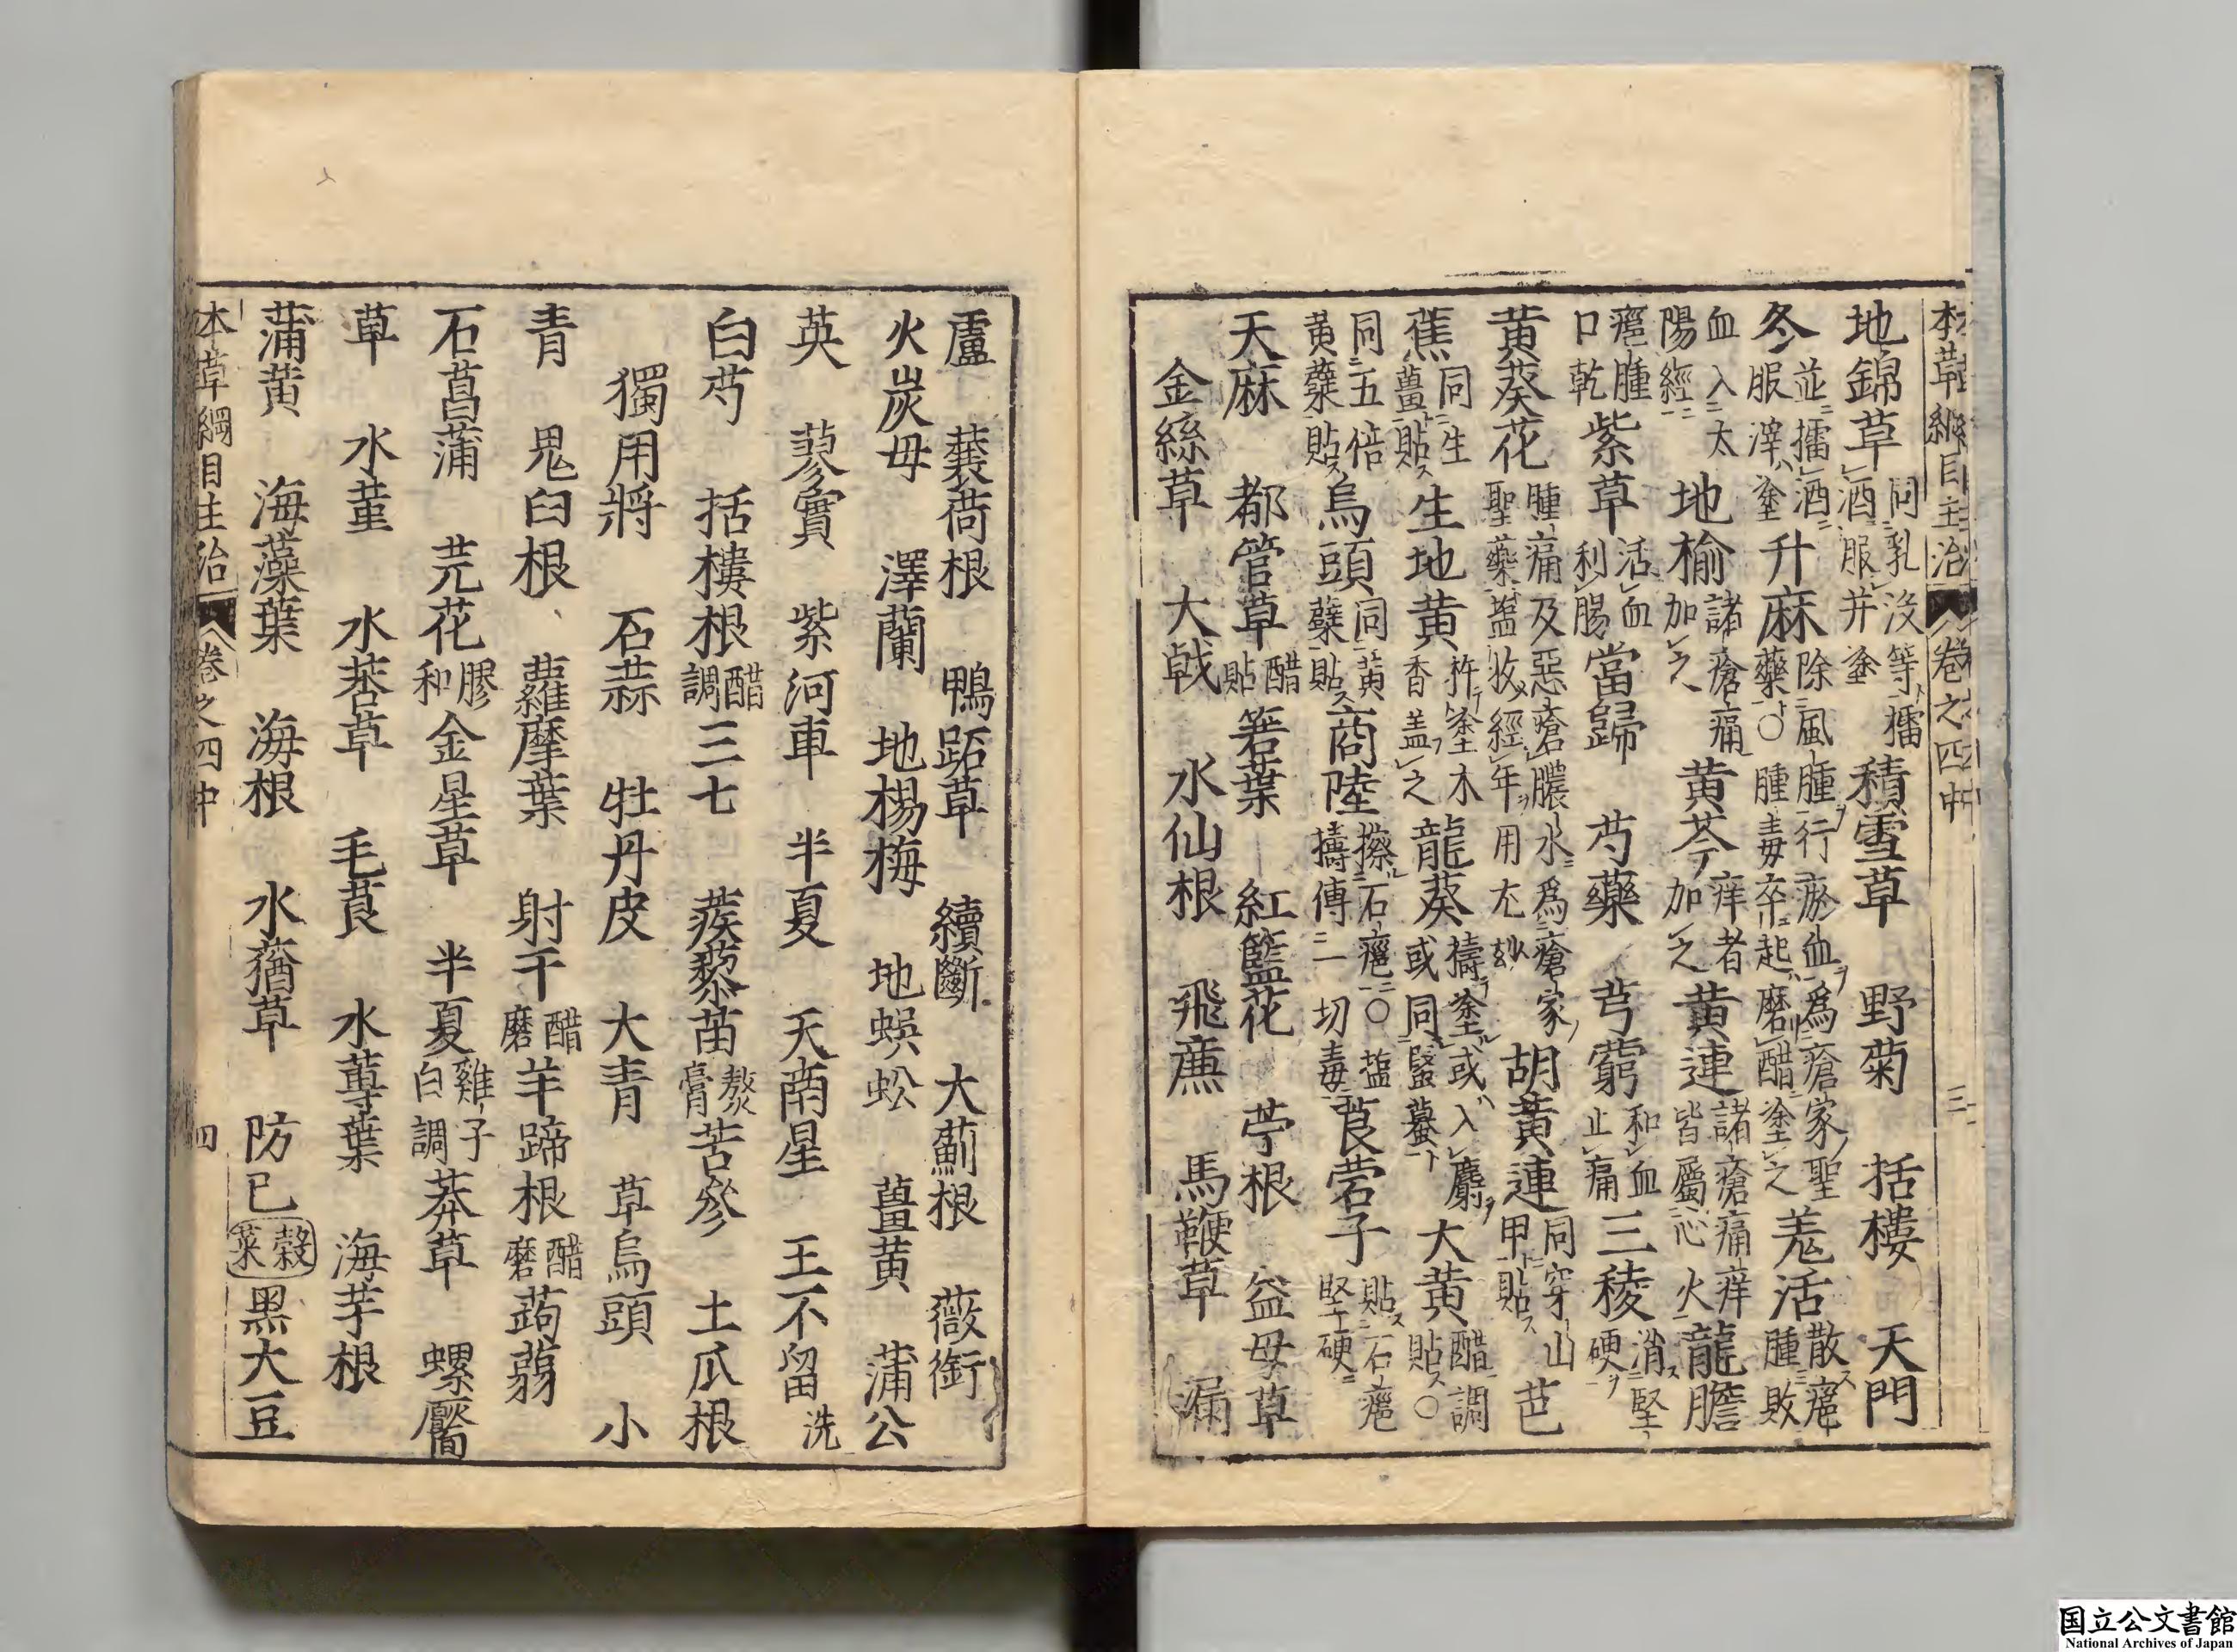 本草綱目主治 卷之四中 三
地錦草 同乳沒等擂酒服并塗 積雪草 野菊 括樓 天門
冬 並擂酒服滓塗 升麻 除風腫行瘀血為瘡家聖藥○腫毒卒起磨醋塗之 羗活 散癰腫敗
血入太陽經 地榆 諸瘡痛加之 黄芩 痒者加之 黄連 諸瘡痛痒皆屬心火 龍膽
癰腫口乾 紫草 活血利腸 當歸 芍藥 芎藭 和血止痛 三稜 消堅硬
黄葵花 腫痛及惡瘡膿水為瘡家聖藥塩收經年用尤妙 胡黄連 同穿山甲貼 芭
蕉 同生薑貼 生地黄 杵塗木香盖之 龍葵 擣塗或入麝或同蝦蟇 大黄 醋調貼○
同五倍黄蘗貼 烏頭 同黄蘗貼 商陸 擦石癰○塩擣傅一切毒 莨菪子 貼石癰堅硬
天麻 都管草 醋貼 箬葉 紅籃花 苧根 益母草
金絲草 大戟 水仙根 飛廉 馬鞭草 漏
盧 蘘荷根 鴨跖草 續斷 大薊根 薇銜
火炭母 澤蘭 地楊梅 地蜈蚣 薑黄 蒲公
英 蓼實 紫河車 半夏 天南星 王不留 洗
白芍 括樓根 醋調 三七 蒺藜苗 熬膏 苦參 土瓜根
獨用將 石蒜 牡丹皮 大青 草烏頭 小
青 鬼臼根 蘿摩葉 射干 醋磨 羊蹄根 醋磨 蒟蒻
石菖蒲 芫花 膠和 金星草 半夏 雞子白調 莽草 螺厴
草 水堇 水莕草 毛莨 水蓴葉 海芋根
蒲黄 海藻葉 海根 水猶草 防已 穀菜 黒大豆
本草綱目主治 卷之四中 四
国立公文書館
National Archives of Japan